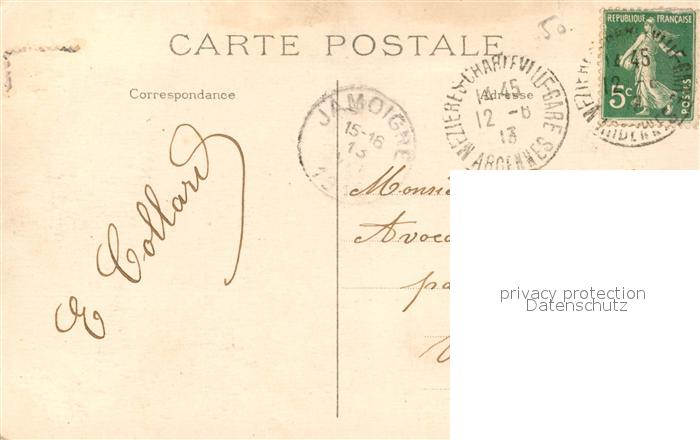 CARTE POSTALE
Correspondance
Adresse
JAMOIGNE
15-16
13
MEZIERES-CHARLEVILLE-GARE
14 45
12 - 8
13
ARDENNES
REPUBLIQUE FRANÇAISE
5c
POSTES
50.
E Collard
privacy protection
Datenschutz